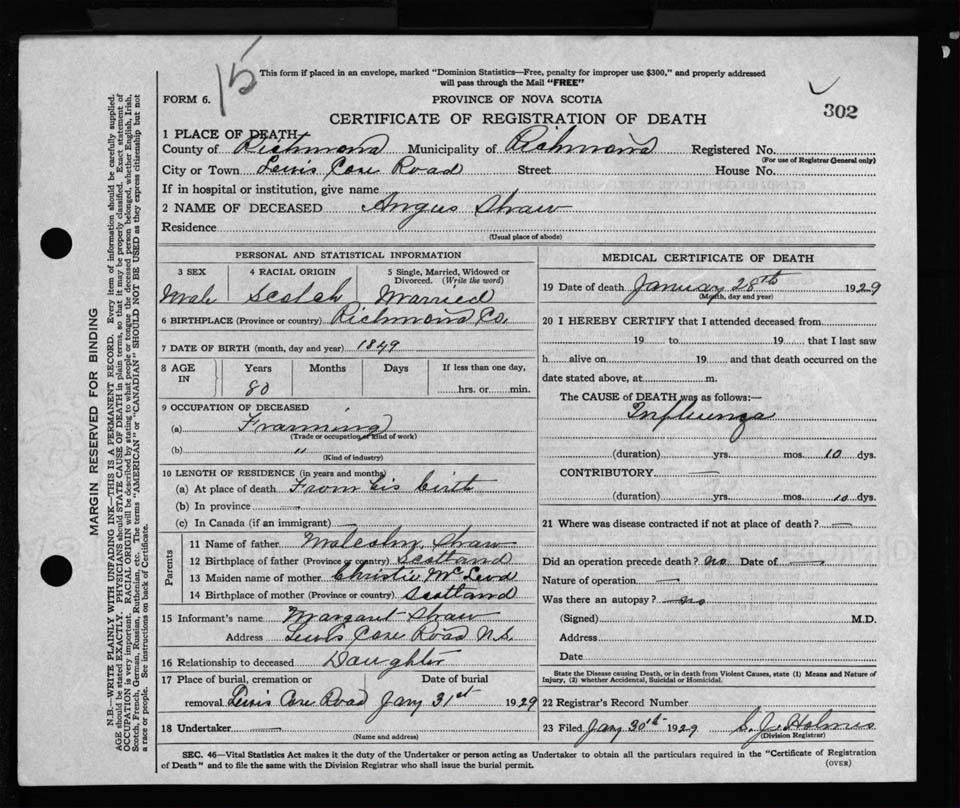 15
This form if placed in an envelope, marked "Dominion Statistics—Free, penalty for improper use $300," and properly addressed
will pass through the Mail "FREE"
FORM 6.
PROVINCE OF NOVA SCOTIA
302
CERTIFICATE OF REGISTRATION OF DEATH
1 PLACE OF DEATH
County of Richmond Municipality of Richmond Registered No.
(For use of Registrar General only)
City or Town Lewis Cove Road Street House No.
If in hospital or institution, give name
2 NAME OF DECEASED Angus Shaw
Residence
(Usual place of abode)
PERSONAL AND STATISTICAL INFORMATION
3 SEX 4 RACIAL ORIGIN 5 Single, Married, Widowed or Divorced. (Write the word)
Male Scotch Married
6 BIRTHPLACE (Province or country) Richmond Co.
7 DATE OF BIRTH (month, day and year) 1849
8 AGE IN Years Months Days If less than one day,
80 hrs. or min.
9 OCCUPATION OF DECEASED
(a) Framing
(Trade or occupation or kind of work)
(b) "
(Kind of industry)
10 LENGTH OF RESIDENCE (in years and months)
(a) At place of death From his birth
(b) In province —
(c) In Canada (if an immigrant) —
Parents
11 Name of father Malcolm Shaw
12 Birthplace of father (Province or country) Scotland
13 Maiden name of mother Christie McLeod
14 Birthplace of mother (Province or country) Scotland
15 Informant's name Margaret Shaw
Address Lewis Cove Road N.S.
16 Relationship to deceased Daughter
17 Place of burial, cremation or Date of burial
removal Lewis Cove Road Jany 31st 1929
18 Undertaker —
(Name and address)
MEDICAL CERTIFICATE OF DEATH
19 Date of death January 28th 1929
(Month, day and year)
20 I HEREBY CERTIFY that I attended deceased from
19 to 19 that I last saw
h alive on 19 and that death occurred on the
date stated above, at m.
The CAUSE of DEATH was as follows:—
Influenza
(duration) yrs. mos. 10 dys.
CONTRIBUTORY —
(duration) yrs. mos. 10 dys.
21 Where was disease contracted if not at place of death? —
Did an operation precede death? no Date of —
Nature of operation —
Was there an autopsy? — no
(Signed) M.D.
Address
Date
State the Disease causing Death, or in death from Violent Causes, state (1) Means and Nature of
Injury, (2) whether Accidental, Suicidal or Homicidal.
22 Registrar's Record Number
23 Filed Jany 30th 1929 S. J. Holmes
(Division Registrar)
SEC. 46—Vital Statistics Act makes it the duty of the Undertaker or person acting as Undertaker to obtain all the particulars required in the "Certificate of Registration
of Death" and to file the same with the Division Registrar who shall issue the burial permit.
(OVER)
MARGIN RESERVED FOR BINDING
N.B.—WRITE PLAINLY WITH UNFADING INK—THIS IS A PERMANENT RECORD. Every item of information should be carefully supplied.
AGE should be stated EXACTLY. PHYSICIANS should STATE CAUSE OF DEATH in plain terms, so that it may be properly classified. Exact statement of
OCCUPATION is very important. RACIAL ORIGIN will be described by stating to what people or tongue the deceased person belonged, whether English, Irish,
Scotch, French, German, Russian, Ruthenian, etc. The terms "AMERICAN" or "CANADIAN" SHOULD NOT BE USED as they express citizenship but not
a race or people. See instructions on back of Certificate.